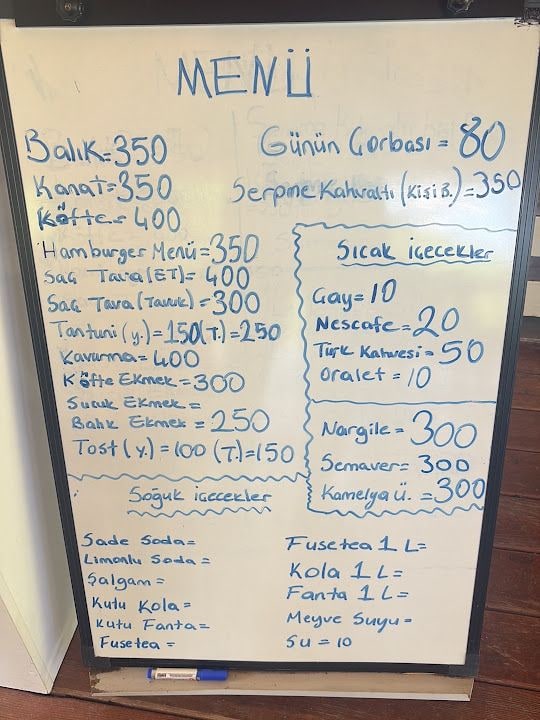 MENÜ
Balık=350
Kanat=350
Köfte= 400
Hamburger Menü=350
Saç Tava(ET)= 400
Saç Tava(Tavuk)=300
Tantuni(y.)=150(T.)=250
Kavurma=400
Köfte Ekmek=300
Sucuk Ekmek=
Balık Ekmek=250
Tost(y.)=100 (T.)=150
Günün Çorbası=80
Serpme Kahvaltı(Kişi B.)=350
Sıcak içecekler
Çay=10
Nescafe=20
Türk Kahvesi=50
Oralet=10
Nargile=300
Semaver=300
Kamelya Ü.=300
Soğuk içecekler
Sade Soda=
Limonlu Soda=
Şalgam=
Kutu Kola=
Kutu Fanta=
Fusetea=
Fusetea 1 L=
Kola 1 L=
Fanta 1 L=
Meyve Suyu=
Su=10